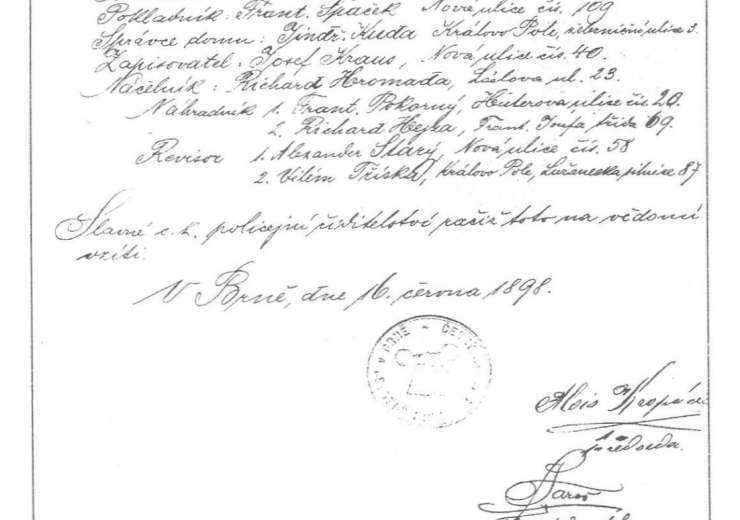 Pokladník: Frant. Špaček Nová ulice čís. 109
Správce domu: Jindř. Kuda Královo Pole, železniční ulice 3.
Zapisovatel: Josef Kraus, Nová ulice čís. 40.
Náčelník: Richard Hromada, ul. 23.
Náhradník 1. Frant. Pokorný, ulice čís. 20.
2. Richard Hejna, Frant. Josefa třída 69.
Revisor 1. Alexander Starý, Nová ulice čís. 58
2. Vilém Tříska, Královo Pole, silnice 87
Slavné c. k. policejní ředitelství račiž toto na vědomí
vzíti.
V Brně, dne 16. června 1898.
V BRNĚ
Alois
předseda.